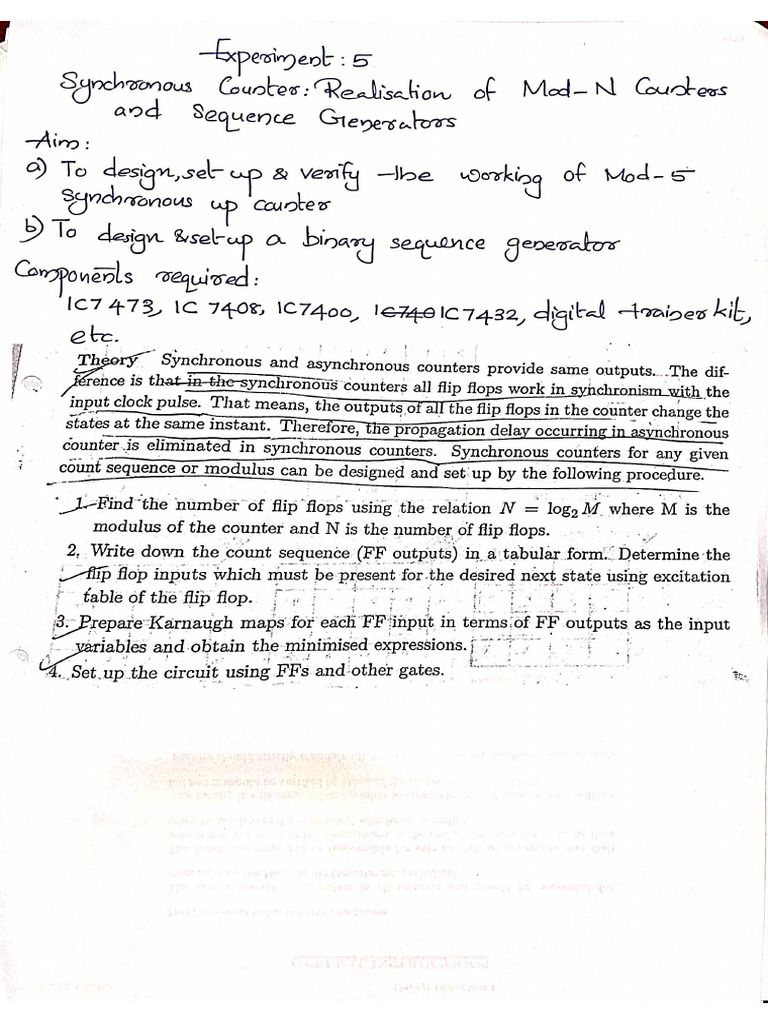 Experiment : 5
Synchronous Counter: Realisation of Mod-N Counters
and Sequence Generators
Aim :
a) To design, set up & verify the working of Mod-5
Synchronous up counter
b) To design & set up a binary sequence generator
Components required :
IC7473, IC 7408, IC7400, IC740 IC7432, digital trainer kit,
etc.
Theory Synchronous and asynchronous counters provide same outputs. The dif-
ference is that in the synchronous counters all flip flops work in synchronism with the
input clock pulse. That means, the outputs of all the flip flops in the counter change the
states at the same instant. Therefore, the propagation delay occurring in asynchronous
counter is eliminated in synchronous counters. Synchronous counters for any given
count sequence or modulus can be designed and set up by the following procedure.
1. Find the number of flip flops using the relation N = log₂ M where M is the
modulus of the counter and N is the number of flip flops.
2. Write down the count sequence (FF outputs) in a tabular form. Determine the
flip flop inputs which must be present for the desired next state using excitation
table of the flip flop.
3. Prepare Karnaugh maps for each FF input in terms of FF outputs as the input
variables and obtain the minimised expressions.
4. Set up the circuit using FFs and other gates.